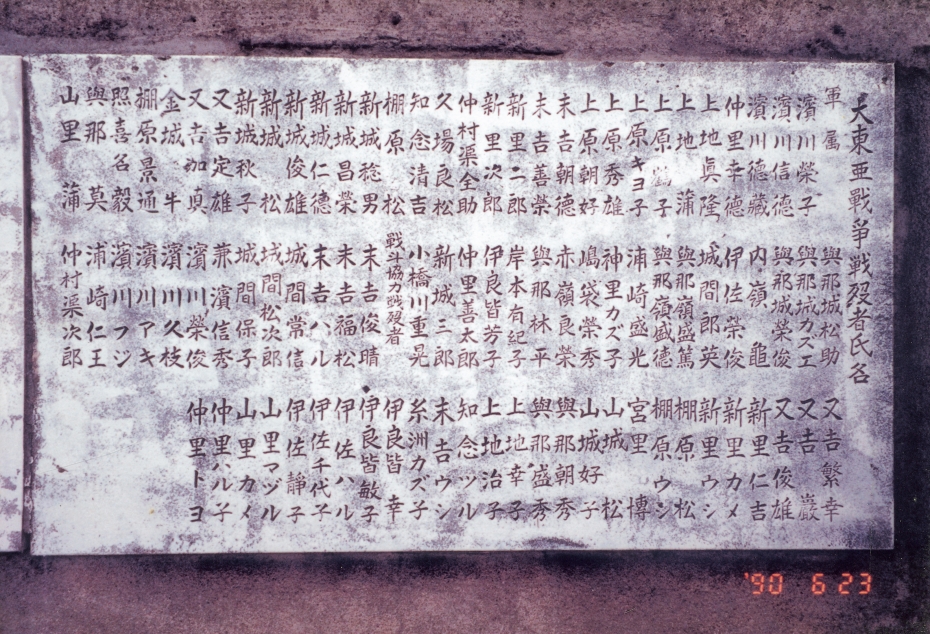 大東亜戰争戰歿者氏名
軍属
濱川榮子
濱川信德
濱川德藏
仲里幸德
上地眞隆
上地蒲
上原鶴子
上原キヨ子
上原秀雄
上原朝好
末吉朝德
末吉善榮
新里二郎
新里次郎
仲村渠全助
久場良松
知念清吉
棚原松
新城稔男
新城昌榮
新城仁德
新城俊雄
新城松
新城秋子
又吉定雄
又吉加真
金城牛
棚原景通
照喜名毅
與那莫
山里蒲
與那城松助
與那城カズエ
與那城榮俊
内嶺龜
伊佐榮俊
城間郎英
與那嶺盛篤
與那嶺盛德
浦崎盛光
神里カズ子
嶋袋榮秀
赤嶺良榮
與那林平
岸本有紀子
伊良皆芳子
仲里善太郎
新城三郎
小橋川重晃
戦斗協力戦歿者
末吉俊晴
末吉福松
末吉ハル
城間常信
城間松次郎
城間保子
兼濱信秀
濱川榮俊
濱川久枝
濱川アキ
濱川フジ
浦崎仁王
仲村渠次郎
又吉繁幸
又吉巖
又吉俊雄
新里仁吉
新里カメ
新里ウシ
棚原松
棚原ウシ
宮里博
山城松
山城好子
與那朝秀
與那盛秀
上地幸子
上地治子
知念ツル
末吉ウシ
糸洲カズ子
伊良皆幸
伊良皆敏子
伊佐ハル
伊佐千代子
伊佐靜子
山里マヅル
山里カメ
仲里ハル子
仲里トヨ
'90 6 23